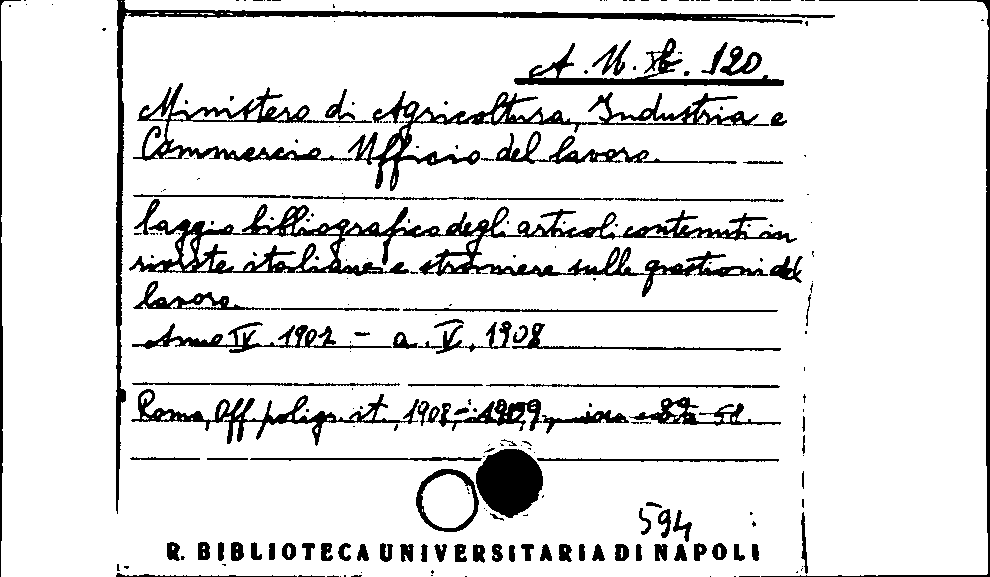 A. M. 120.
Ministero di Agricoltura, Industria e
Commercio. Ufficio del lavoro.
Saggio bibliografico degli articoli contenuti in
riviste italiane e straniere sulle questioni del
lavoro.
Anno IV. 1907 - a. V, 1908
Roma, Off. poligr. it., 1908,-1909,
594
R. BIBLIOTECA UNIVERSITARIA DI NAPOLI